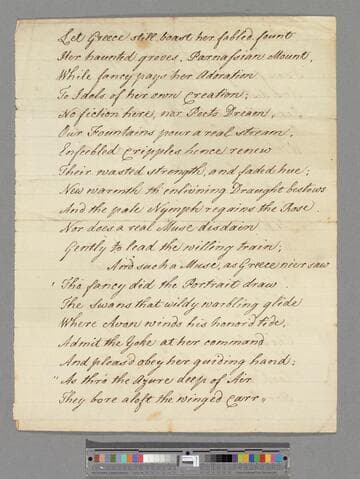 Let Greece still boast her fabled fount
Her haunted groves, Parnassian Mount,
While fancy pays her Adoration
To Idols of her own Creation;
No fiction here, nor Poets Dream,
Our Fountains pour a real stream,
Enfeebled Cripples hence renew
Their wasted strength, and faded hue;
New warmth th enlivning Draught bestows
And the pale Nymph regains the Rose.
Nor does a real Muse disdain
Gently to lead the willing train;
And such a Muse, as Greece ne'er saw
Tho fancy did the Portrait draw.
The Swans that wildly warbling glide
Where Avon winds his honor'd tide,
Admit the Yoke at her command
And pleas'd obey her guiding hand;
"As thro' the Azure deep of Air
They bore aloft the winged Carr"